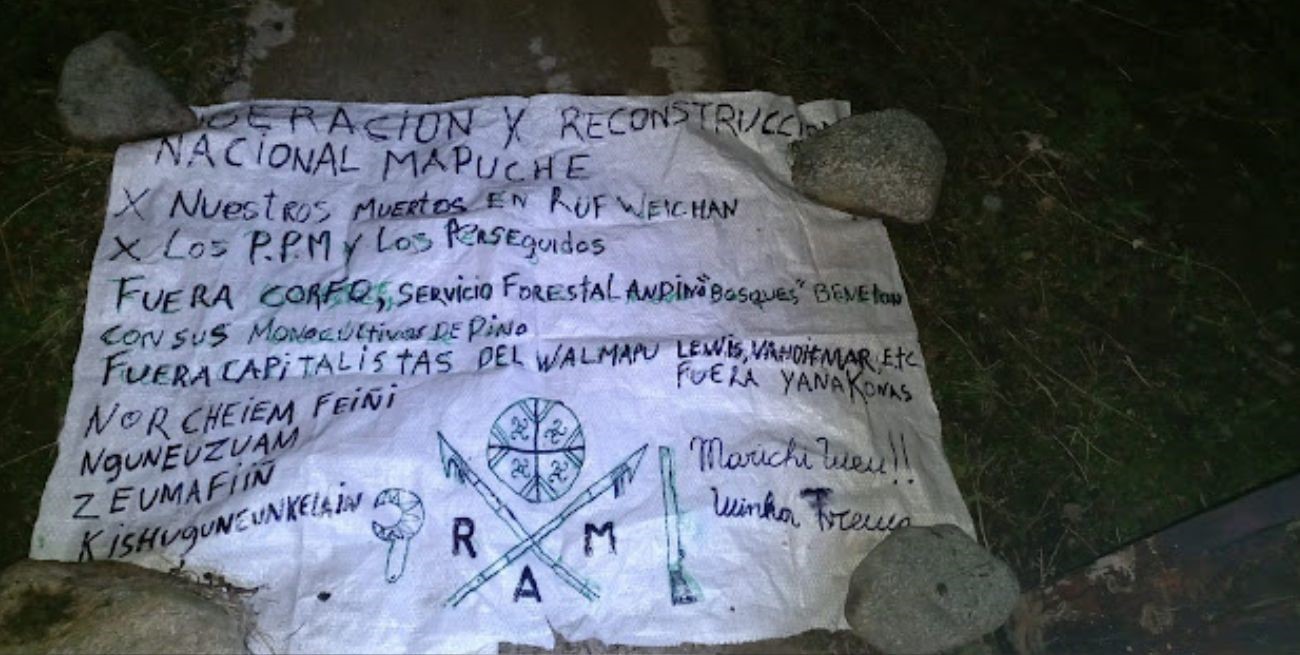 ERACION Y RECONSTRUCCI
NACIONAL MAPUCHE
X NUESTROS MUERTOS EN RUF WEICHAN
X LOS P.P.M Y LOS PERSEGUIDOS
FUERA CORFO, SERVICIO FORESTAL ANDINO "BOSQUES" BENETON
CON SUS MONOCULTIVOS DE PINO
FUERA CAPITALISTAS DEL WALMAPU LEWIS, ETC
FUERA YANAKONAS
NOR CHEIEM FEIÑI
NGUNEUZUAM
ZEUMAFIIÑ
KISHUGUNEUNKELAIN
Marichi Weu!!
Winka Trewa
R M
A